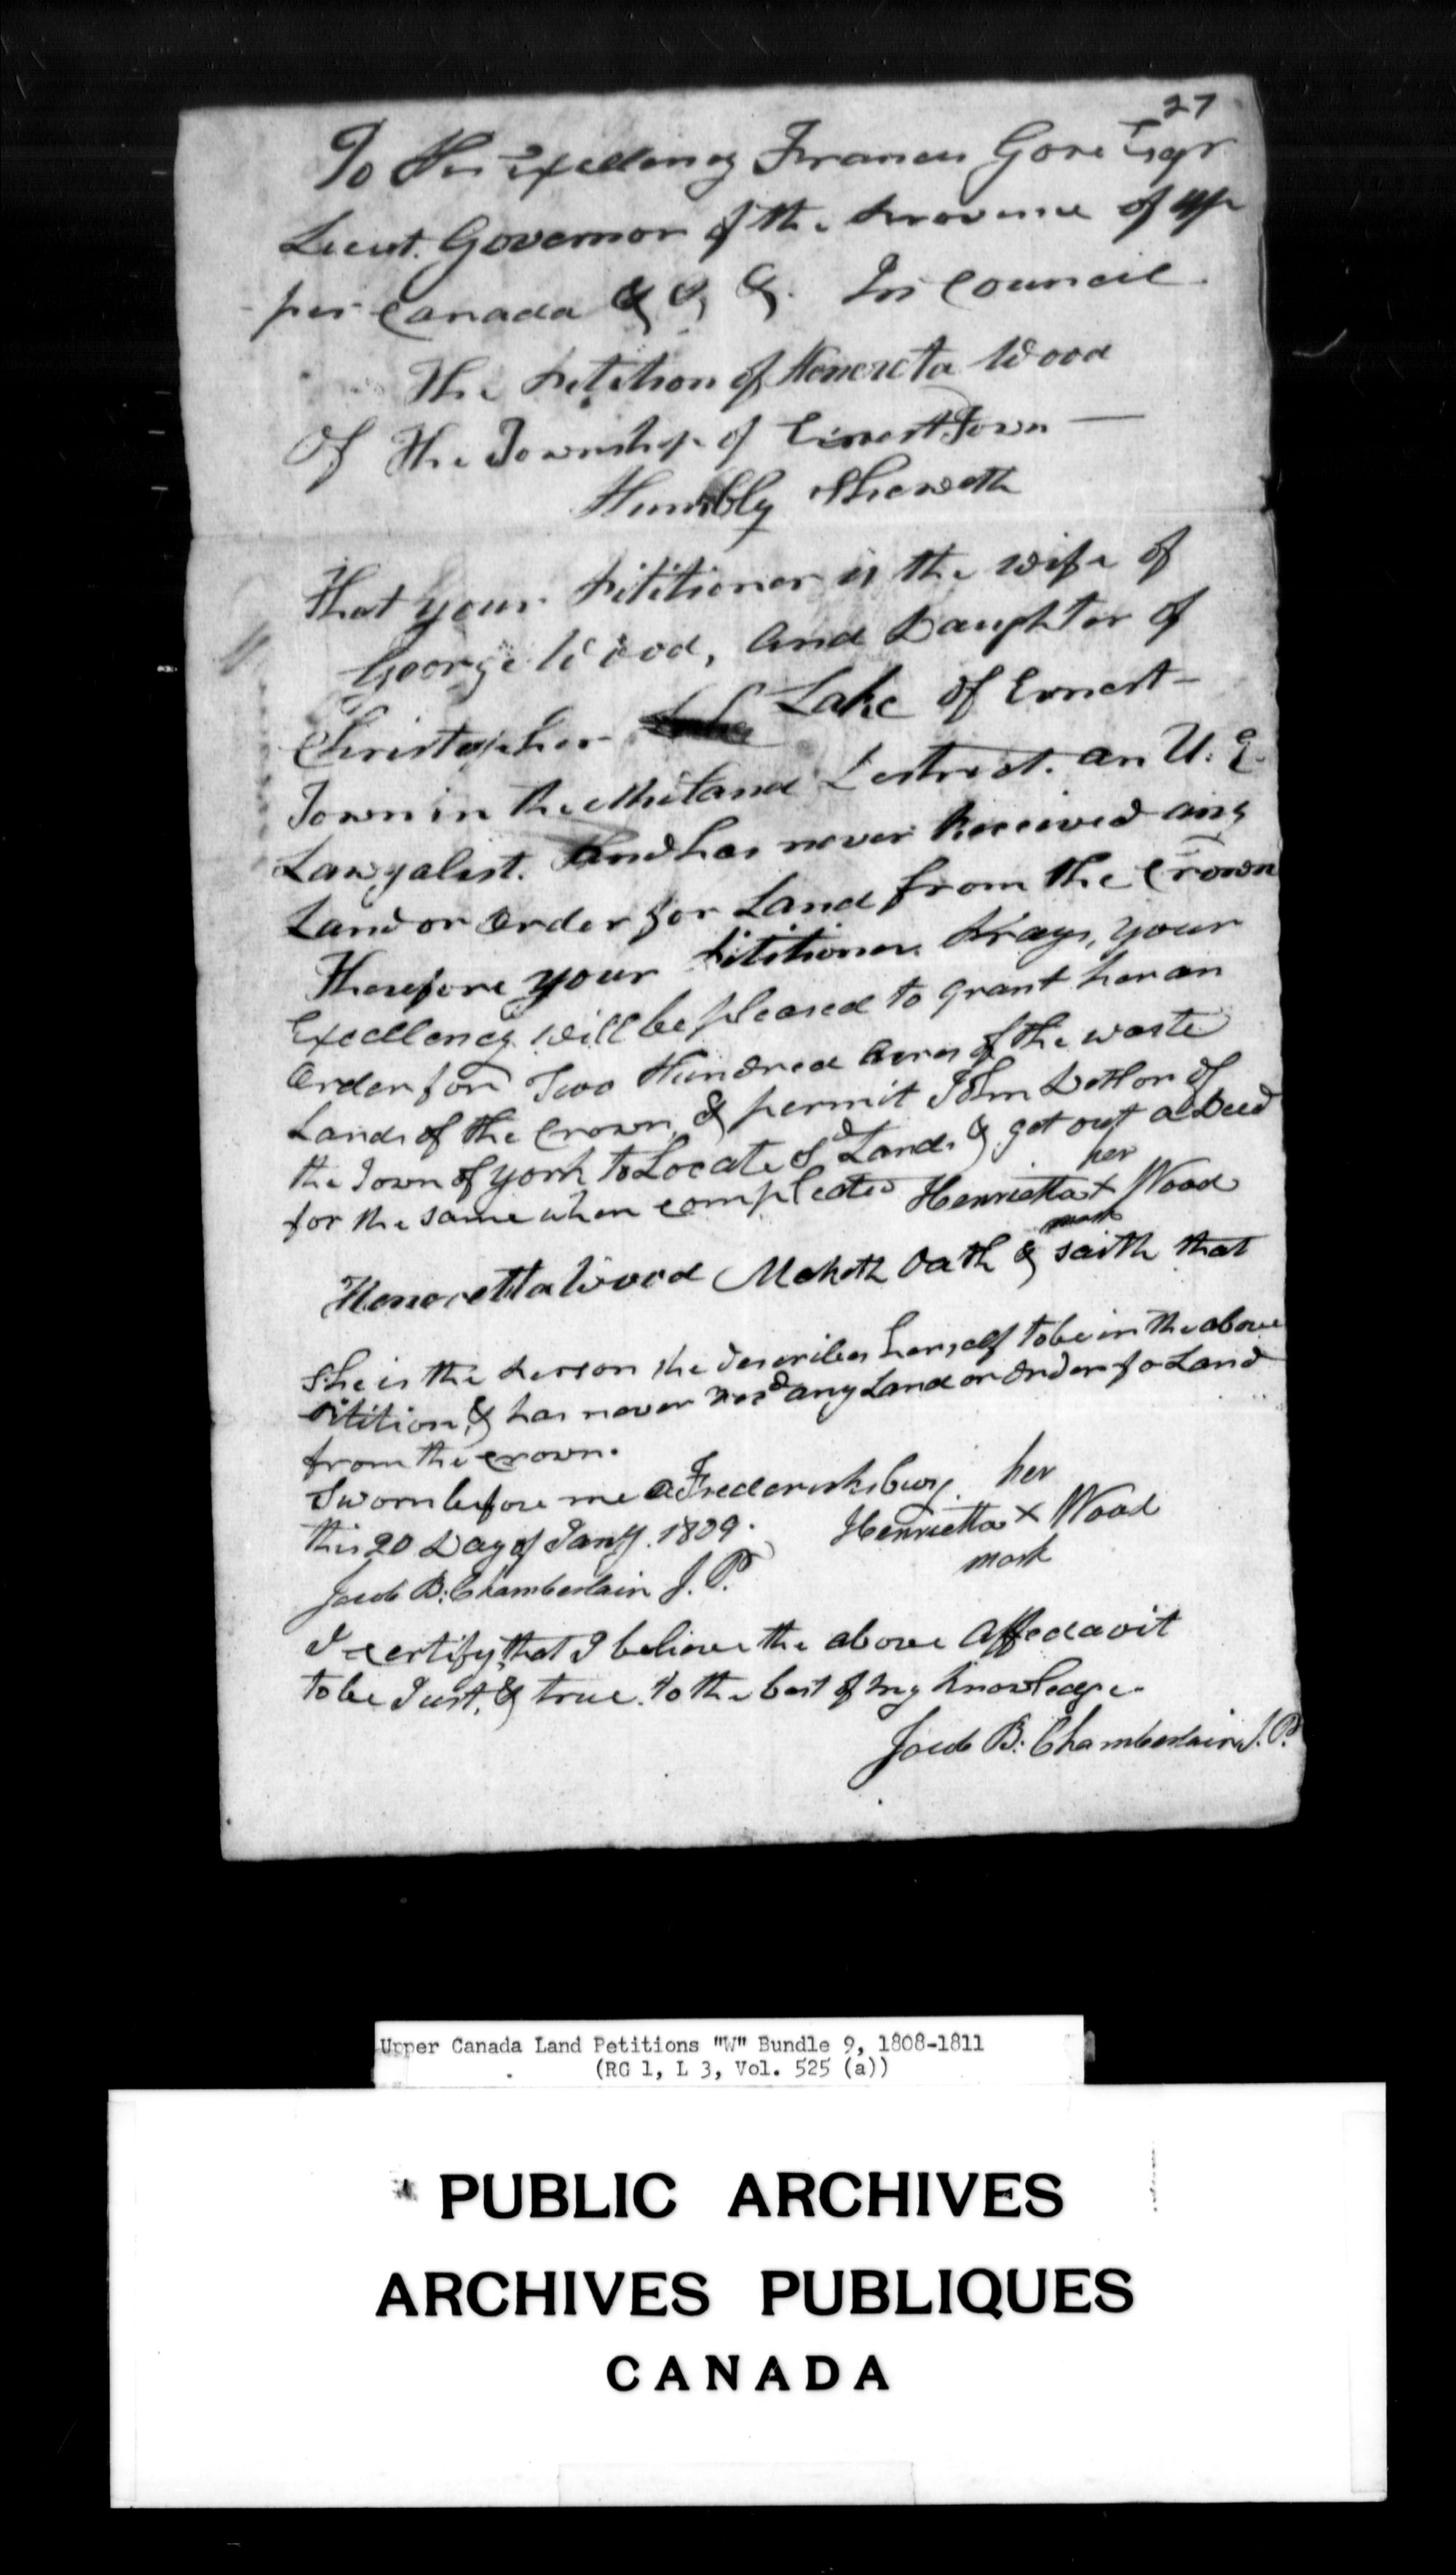 27
To His Exellency Francis Gore Esqr
Lieut. Governor of the Province of Up
per Canada & & &. In Council
The Petition of Henereta Wood
Of The Township of Ernest Town —
Humbly Sheweth
That your Petitioner is the wife of
George Wood, and Daughter of
Christopher Lake of Ernest-
Town in the Midland Destrict. an U. E.
Lawyalist. And has never Received any
Land or Order for Land from the Crown
Therefore your Petitioner Prays, your
Excellency will be pleased to grant her an
Order for Two Hundred Acres of the waste
Lands of the Crown, & permit John Detlor of
the Town of York to Locate sd Lands & get out a Deed
for the same when compleated
her
Henrietta X Wood
mark
Henoretta Wood Maketh Oath & saith that
She is the person she describes herself to be in the above
Petition, & has never recd any Land or Order fo Land
from the crown.
Sworn before me a Fredericksburg
this 20 Day of Jany. 1809.
Jacob B: Chamberlain J. P.
her
Henrietta X Wood
mark
I certify, that I believe the above Affedavit
to be Just, & true. to the best of my knowledge.
Jacob B: Chamberlain J. P.
Upper Canada Land Petitions "W" Bundle 9, 1808-1811
(RG 1, L 3, Vol. 525 (a))
PUBLIC ARCHIVES
ARCHIVES PUBLIQUES
CANADA